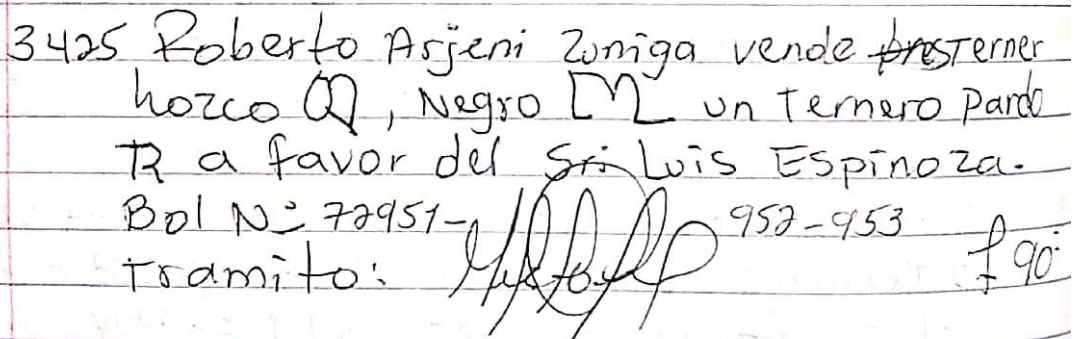 3425 Roberto Arjeni Zuniga vende Terner
hozco, Negro un Ternero pardo
a favor del Sr. Luis Espinoza.
Bol Nº 72951- 952-953
tramito: 90